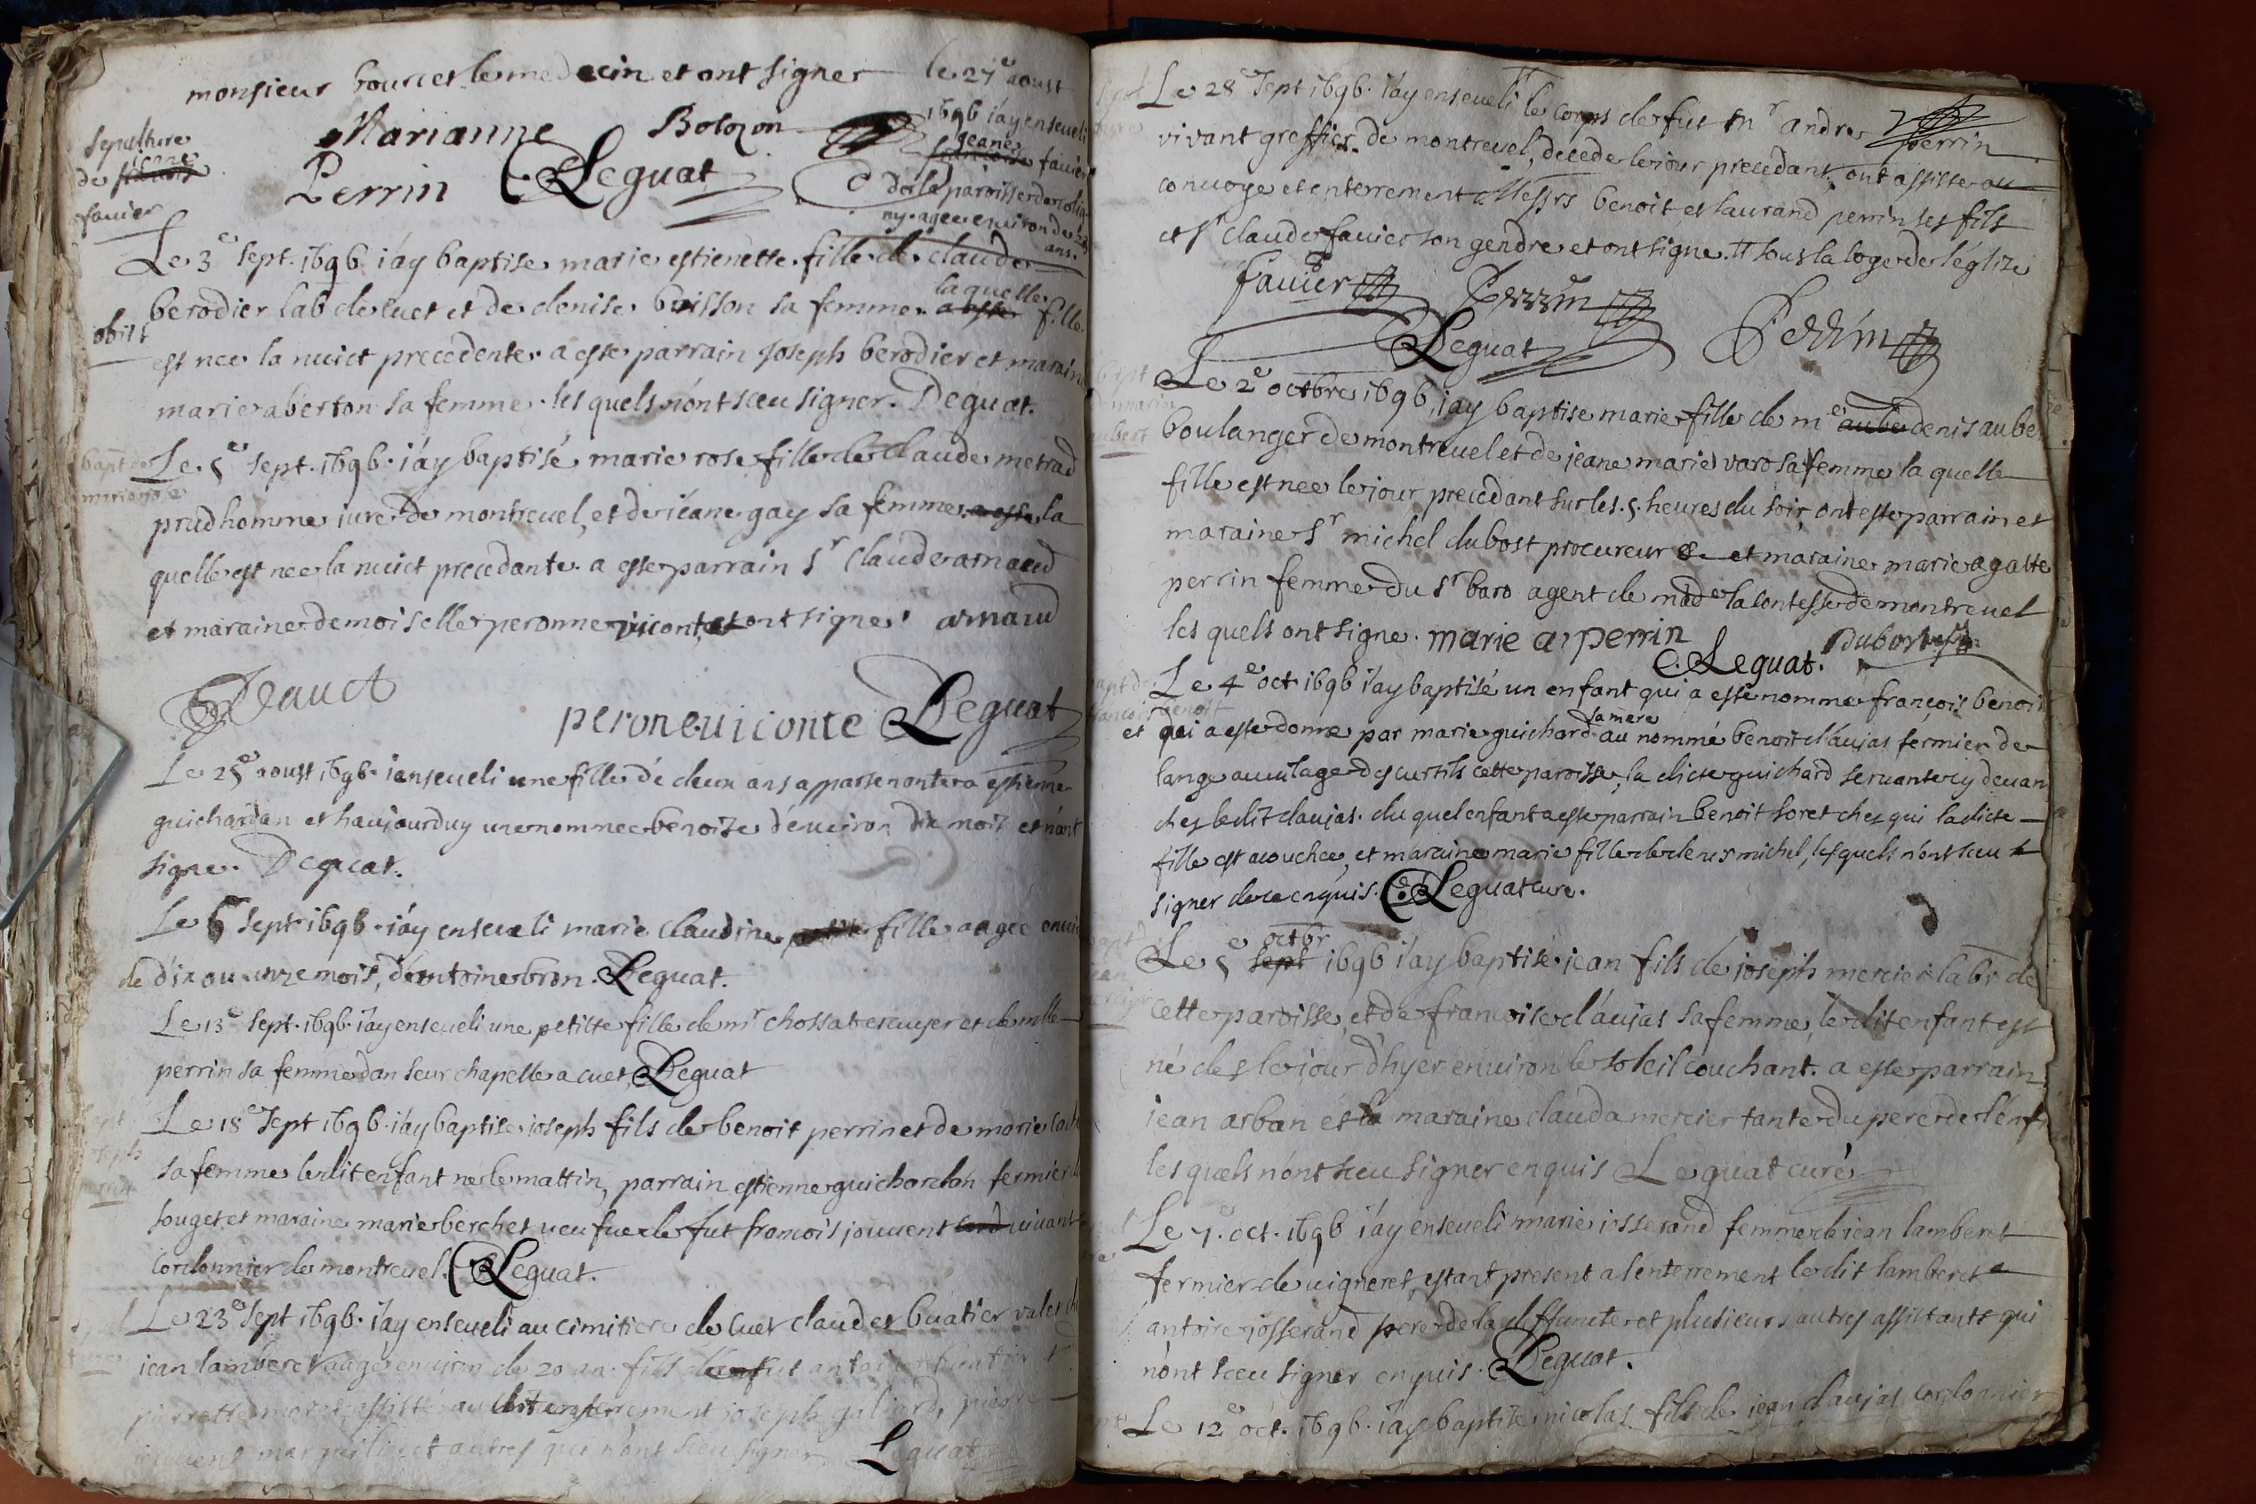 monsieur bourcet le medecin et ont signer
Marianne Bolozon
Perrin C Leguat
le 27e aoust
1696 i'ay enseueli
jeane
francoise fauier
de la paroisse de colig
ny. agee enuiron de 20
ans.
Sepulture
de jeane
fauier
Le 3e sept. 1696 i'ay baptise marie estienette fille de claude
berodier lab de cuet et de denise buisson sa femme. a este laquelle fille
est nee la nuict precedente. a este parrain joseph berodier et maraine
marie aberton sa femme. les quels n'ont sceu signer. Leguat.
obiit
bapt de
marie rose
Le 5e sept. 1696. i'ay baptisé marie rose fille de claude metrad
prudhomme iure de montreuel, et de jéane gay sa femme. a este la
quelle est nee la nuict precedante. a este parrain Sr Claude arnaud
et maraine demoiselle peronne viconte, et ont signe. arnaud
perone uiconte Leguat
Le 25e aoust 1696. i'enseueli une fille de deux ans appartenante a estienne
guichardan et haujourduy une nommee benoite d'enuiron dix mois et n'ont
signe. Leguat.
Le 6 sept 1696. i'ay enseueli marie claudine fille aagee enuiron
de dix ou unze mois, d'antoine bron. Leguat.
Le 13e sept. 1696. i'ay enseueli une petitte fille de mr chossat escuyer et de mlle
perrin sa femme dan leur chapelle a cuet, Leguat
Le 18e Sept 1696. i'ay baptise joseph fils de benoit perrin et de marie
sa femme le dit enfant ne le mattin, parrain estienne guichardan fermier
souget et maraine marie berchet ueufue de fut francois jouuent cord uiuant
Cordonnier de montreuel. C Leguat.
Le 23e sept 1696. i'ay enseueli au cimitiere de cuet claude buatier valet de
jean lamberet aagé enuiron de 20 an. fils de fut antoine buatier et
pierrette moret assiste au dit enterrement joseph galiard, pierre
jouuent marguillier et autres qui n'ont sceu signer Leguat
Le 28e Sept 1696. i'ay enseueli le corps de fut Mr andre perrin
vivant greffier de montreuel, decede le jour precedant, ont assiste au
conuoye et enterrement Messrs benoit et laurand perrin ses fils
et Sr claude fauier son gendre et ont signe. # sous la loge de l'églize
fauier Perrin
Leguat Perrin
Le 2e octbre 1696, i'ay baptise marie fille de me aube denis aube
boulanger de montreuel et de jeane marie varo sa femme la quelle
fille est nee le jour precedant sur les. 5. heures du soir, ont este parrain et
maraine Sr michel dubost procureur & et maraine marie agatte
perrin femme du Sr baro agent de made la contesse de montreuel
les quels ont signe. marie a perrin Dubost
C. Leguat.
Le 4e oct. 1696 i'ay baptisé un enfant qui a esté nomme françois benoit
et qui a este donne par marie guichard sa mere au nommé benoit d'aujas fermier de
lange au uilage des curtils cette paroisse, la dicte guichard seruante cy deuan
chez le dit daujas. du quel enfant a este parrain benoit soret chez qui la dicte
fille est acouchee, et maraine marie fille de denis michel, lesquels n'ont sceu
signer de ce enquis. C Leguat cure.
Le 5e sept octbr 1696 i'ay baptisé jean fils de joseph mercier labr de
cette paroisse, et de francoise d'aujas sa femme, le dit enfant est
né des le jour d'hyer enuiron le soleil couchant. a este parrain
jean arban et la maraine clauda mercier tante du pere de l'enf
les quels n'ont sceu signer enquis Leguat curé
Le 7. oct. 1696 i'ay enseueli marie josserand femme de jean lamberet
fermier de uigneret, estant present a l'enterrement le dit lamberet
antoine josserand pere de la deffuncte et plusieurs autres assistants qui
n'ont sceu signer enquis. Leguat.
Le 12e oct. 1696. i'ay baptise nicolas fils de jean daujas cordonnier